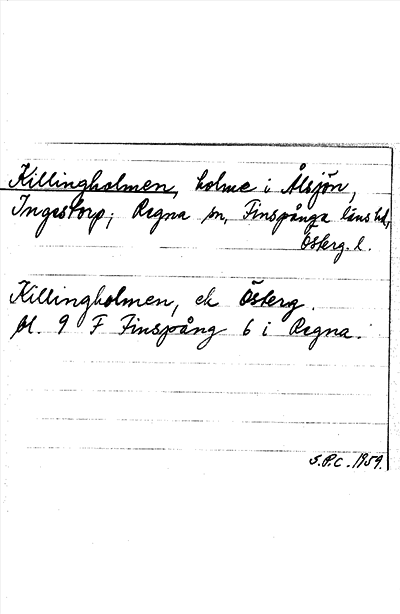 Killingholmen, holme i Ålsjön,
Ingestorp; Regna sn, Finspånga läns hd,
Österg. l.
Killingholmen, ek Österg.
bl. 9 F Finspång 6 i Regna.
S.P.C. 1959.